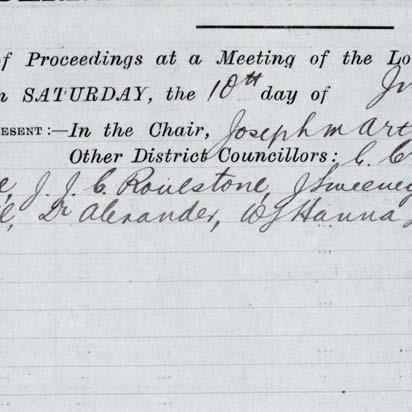 of Proceedings at a Meeting of the Lo
n SATURDAY, the 10th day of
ESENT:—In the Chair, Joseph M Art
Other District Councillors: C. C
J. J. C. Roulstone, J Sweeney
Dr Alexander, W J Hanna